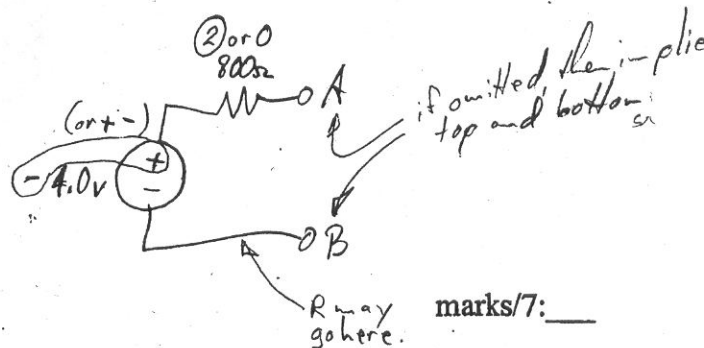 ② or 0
800Ω
A
(or + -)
+
- 4.0v
-
B
if omitted, then implied
top and bottom
R may
go here.
marks/7:___